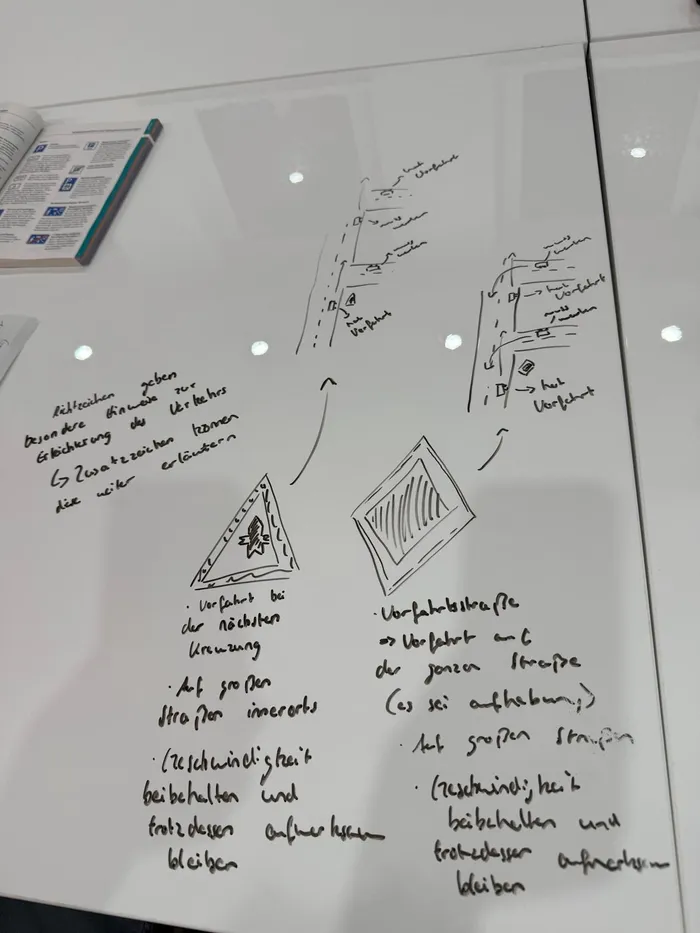 hat
Vorfahrt
muss
warten
muss
warten
hat
Vorfahrt
muss
warten
hat
Vorfahrt
muss
warten
hat
Vorfahrt
Richtzeichen geben
besondere Hinweise zur
Erleichterung des Verkehrs
↳ Zusatzzeichen können
diese weiter erläutern
· Vorfahrt bei
der nächsten
Kreuzung
· Auf großen
Straßen innerorts
· Geschwindigkeit
beibehalten und
trotzdessen aufmerksam
bleiben
· Vorfahrtsstraße
=> Vorfahrt auf
der ganzen Straße
(es sei
· Auf großen Straßen
· Geschwindigkeit
beibehalten und
trotzdessen aufmerksam
bleiben